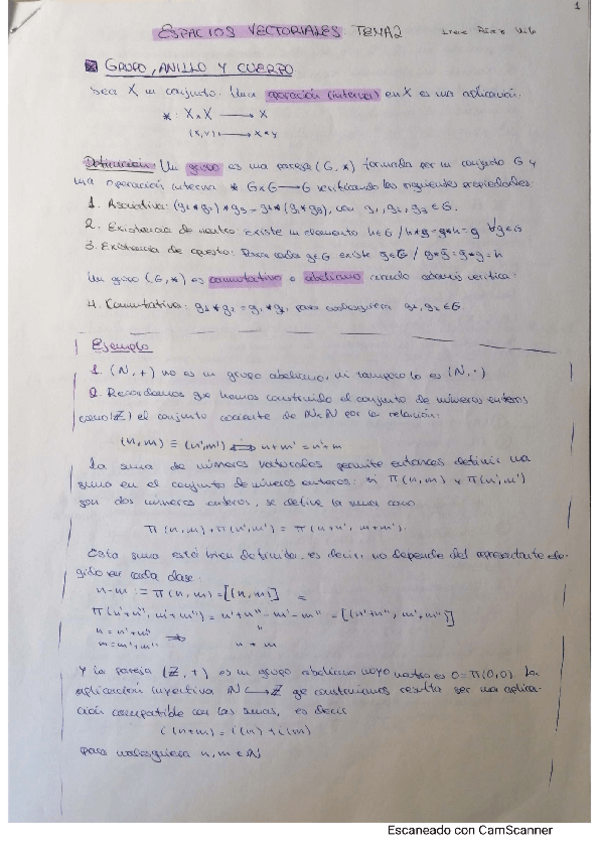 1
ESPACIOS VECTORIALES TEMA 2
GRUPO, ANILLO Y CUERPO
Sea X un conjunto. Una operación (interna) en X es una aplicación.
* : X x X → X
(x,y) → x*y
Definición: Un grupo es una pareja (G, *) formada por un conjunto G y
una operación interna * G x G → G verificando las siguientes propiedades:
1. Asociativa: (g₁*g₂)*g₃ = g₁*(g₂*g₃), con g₁, g₂, g₃ ∈ G.
2. Existencia de neutro: existe un elemento h∈G / h*g = g*h = g ∀g∈G
3. Existencia de opuesto: Para cada g∈G existe g̃∈G / g*g̃ = g̃*g = h
Un grupo (G, *) es conmutativo o abeliano cuando además verifica:
4. Conmutativa: g₁*g₂ = g₂*g₁, para cualesquiera g₁, g₂ ∈ G.
Ejemplo
1. (N, +) no es un grupo abeliano, ni tampoco lo es (N, ·)
2. Recordamos que hemos construido el conjunto de números enteros
como (Z) el conjunto cociente de N x N por la relación:
(n, m) ≡ (n', m') ⟺ n + m' = n' + m
La suma de números naturales permite entonces definir una
suma en el conjunto de números enteros: si π(n, m) y π(n', m')
son dos números enteros, se define la suma como
π(n, m) + π(n', m') = π(n + n', m + m').
Esta suma está bien definida, es decir, no depende del representante ele-
gido en cada clase:
n - m := π(n, m) = [(n, m)] =
π(n'+n'', m'+m'') = n'+n''-m'-m'' = [(n'+n'', m'+m'')]
n = n'+n''
m = m'+m'' ⇒
Y la pareja (Z, +) es un grupo abeliano cuyo neutro es 0 = π(0,0). La
aplicación inyectiva N ↪ Z que construimos resulta ser una aplica-
ción compatible con las sumas, es decir
i(n+m) = i(n) + i(m)
para cualesquiera n, m ∈ N
Escaneado con CamScanner